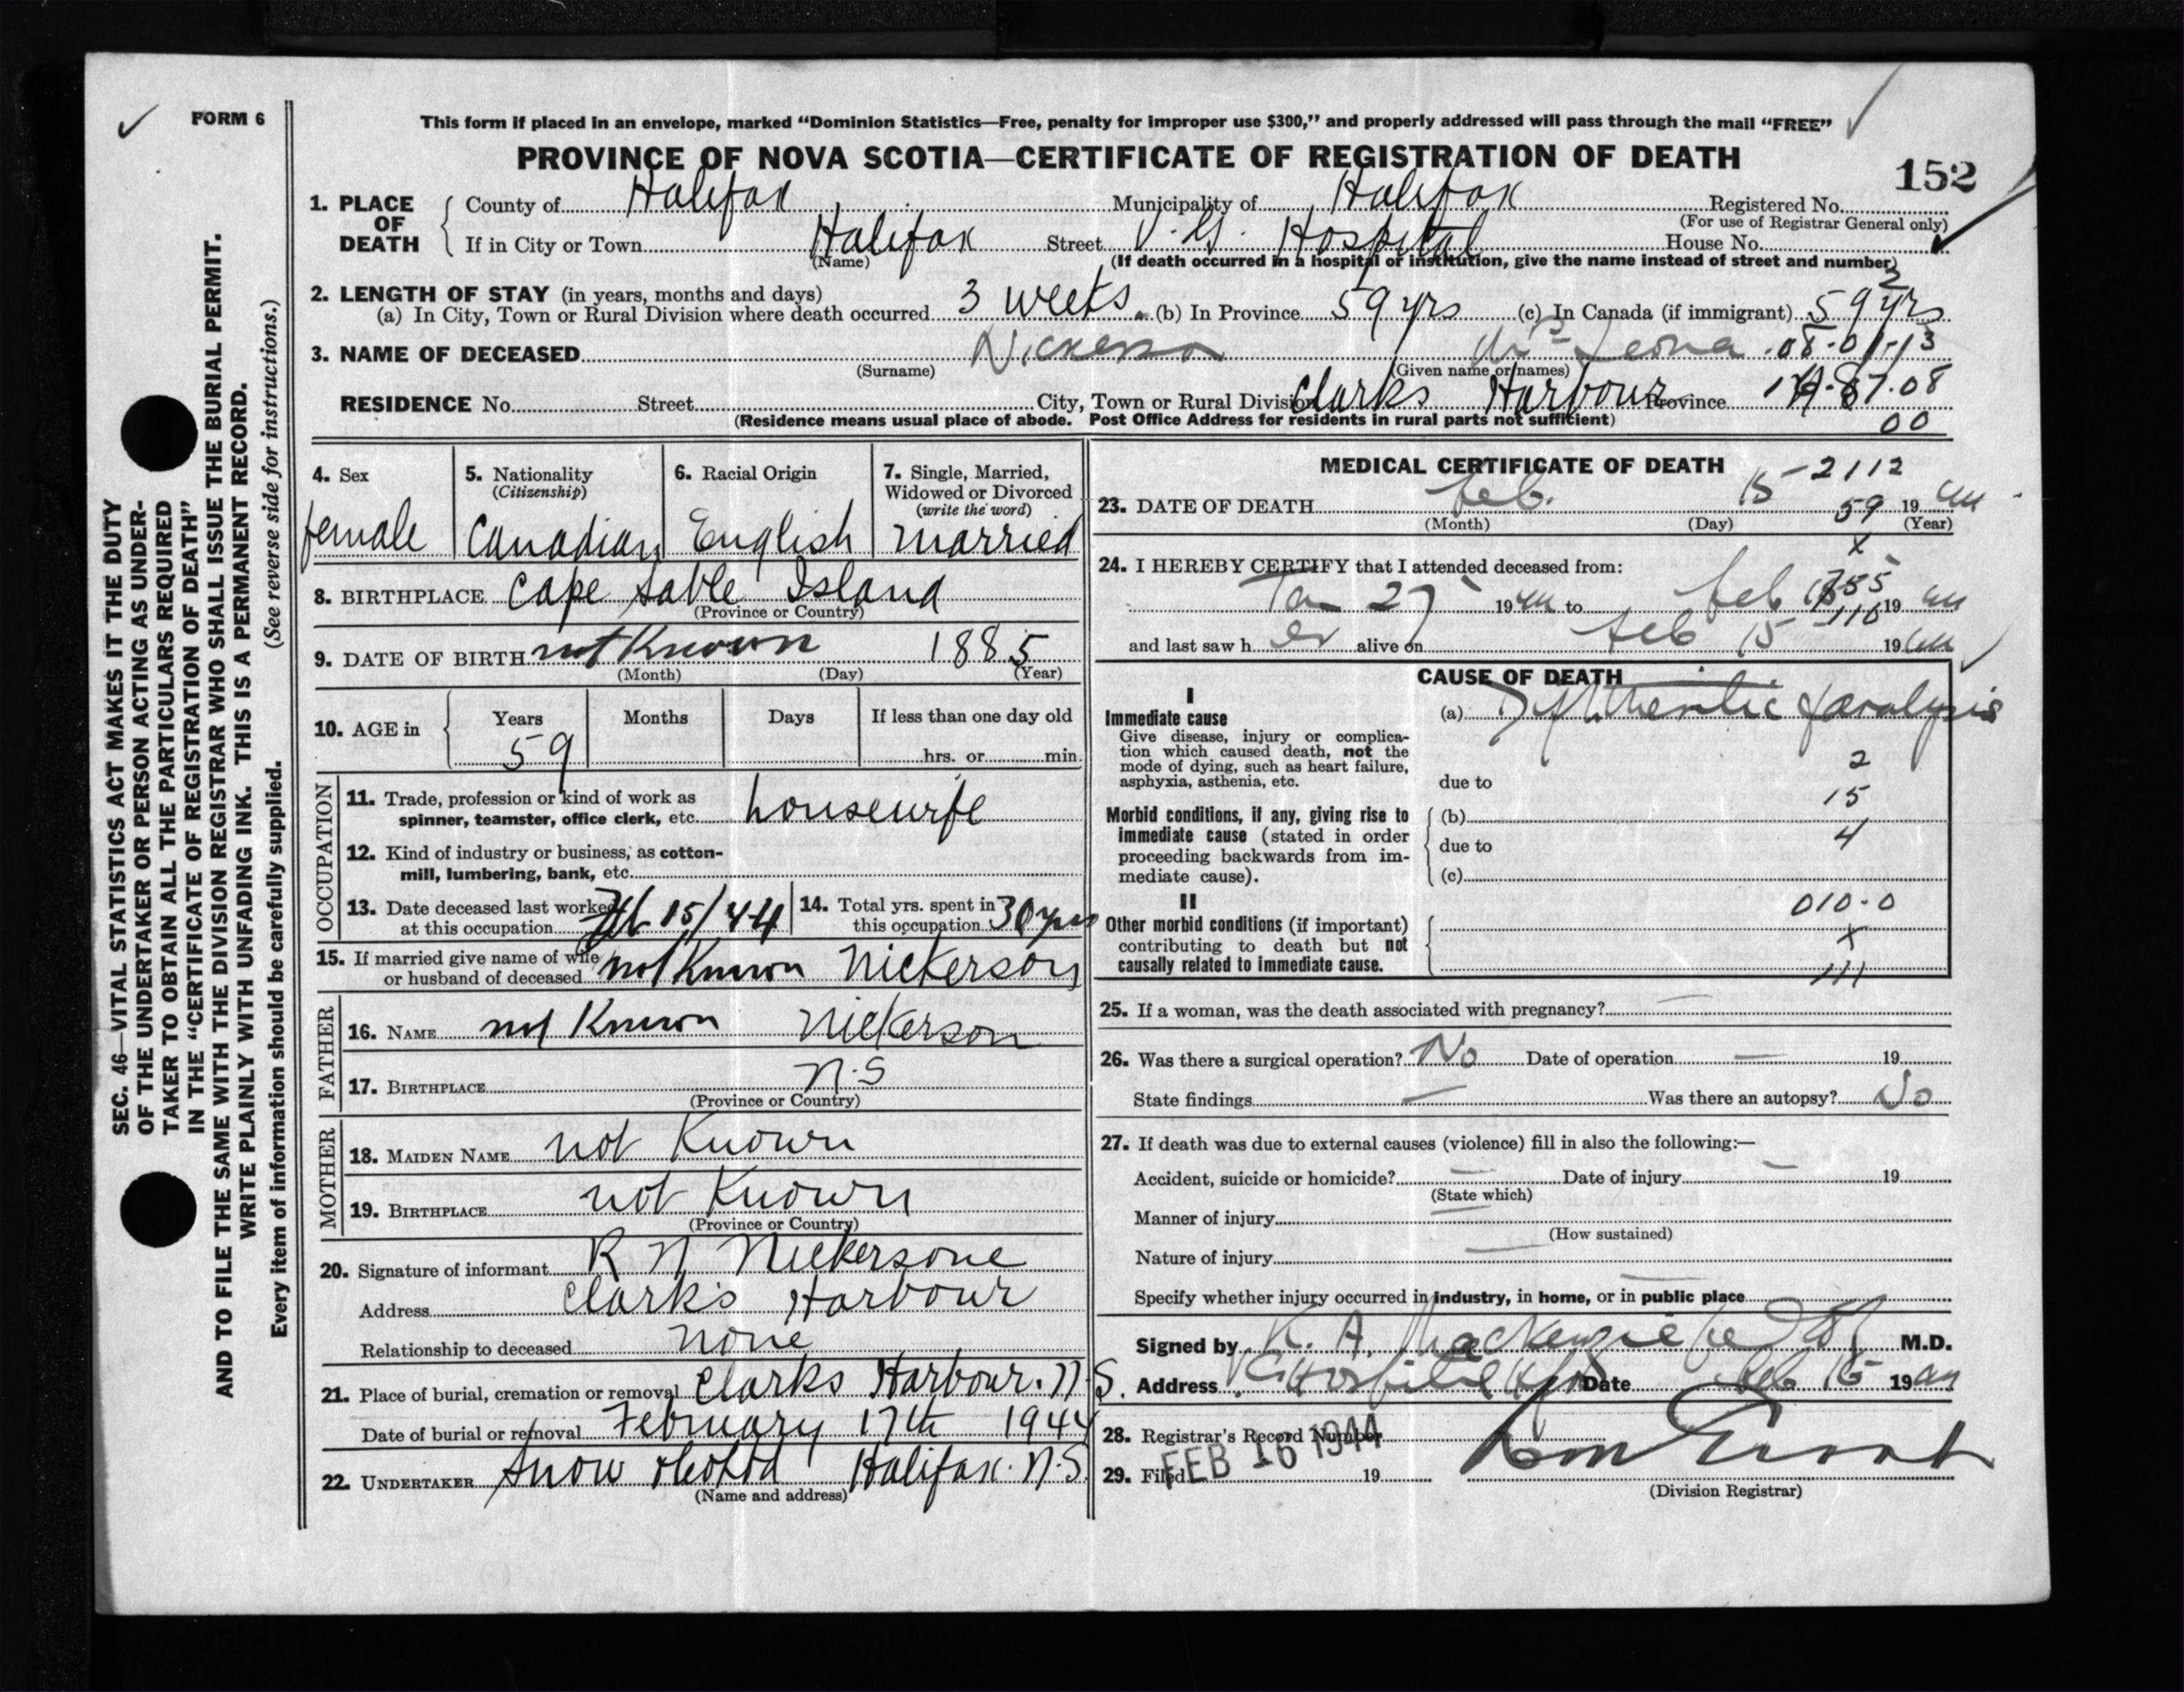 FORM 6
This form if placed in an envelope, marked “Dominion Statistics—Free, penalty for improper use $300,” and properly addressed will pass through the mail “FREE”
PROVINCE OF NOVA SCOTIA—CERTIFICATE OF REGISTRATION OF DEATH
152
1. PLACE OF DEATH
County of Halifax Municipality of Halifax Registered No.
(For use of Registrar General only)
If in City or Town Halifax Street V. G. Hospital House No.
(Name) (If death occurred in a hospital or institution, give the name instead of street and number)
2. LENGTH OF STAY (in years, months and days)
2
(a) In City, Town or Rural Division where death occurred 3 weeks. (b) In Province 59 yrs (c) In Canada (if immigrant) 59 yrs
3. NAME OF DECEASED Nickerson Mrs Leona 08-01-13
(Surname) (Given name or names)
RESIDENCE No. Street City, Town or Rural Division Clarks Harbour Province
(Residence means usual place of abode. Post Office Address for residents in rural parts not sufficient)
00
4. Sex
female
5. Nationality
(Citizenship)
Canadian
6. Racial Origin
English
7. Single, Married,
Widowed or Divorced
(write the word)
married
8. BIRTHPLACE Cape Sable Island
(Province or Country)
9. DATE OF BIRTH not Known 1885
(Month) (Day) (Year)
10. AGE in
Years Months Days If less than one day old
59 hrs. or min.
OCCUPATION
11. Trade, profession or kind of work as
spinner, teamster, office clerk, etc. housewife
12. Kind of industry or business, as cotton-
mill, lumbering, bank, etc.
13. Date deceased last worked
at this occupation 15/44
14. Total yrs. spent in
this occupation 30 yrs
15. If married give name of wife
or husband of deceased not Known Nickerson
FATHER
16. NAME not Known Nickerson
17. BIRTHPLACE N.S
(Province or Country)
MOTHER
18. MAIDEN NAME not Known
19. BIRTHPLACE not Known
(Province or Country)
20. Signature of informant R N Nickersone
Address Clark's Harbour
Relationship to deceased none
21. Place of burial, cremation or removal Clarks Harbour. N.S.
Date of burial or removal February 17th 1944
22. UNDERTAKER Snow Halifax. N.S.
(Name and address)
MEDICAL CERTIFICATE OF DEATH
-2112
23. DATE OF DEATH Feb. 15 59 19 44
(Month) (Day) (Year)
x
24. I HEREBY CERTIFY that I attended deceased from:
Jan 27 1944 to Feb 19 44
and last saw h er alive on Feb 15 1944
CAUSE OF DEATH
I
Immediate cause
Give disease, injury or complica-
tion which caused death, not the
mode of dying, such as heart failure,
asphyxia, asthenia, etc.
(a) Diphtheritic paralysis
2
due to
15
Morbid conditions, if any, giving rise to
immediate cause (stated in order
proceeding backwards from im-
mediate cause).
(b)
4
due to
(c)
II
Other morbid conditions (if important)
contributing to death but not
causally related to immediate cause.
010-0
x
111
25. If a woman, was the death associated with pregnancy? —
26. Was there a surgical operation? No Date of operation — 19
State findings — Was there an autopsy? No
27. If death was due to external causes (violence) fill in also the following:—
Accident, suicide or homicide? — Date of injury — 19
(State which)
Manner of injury —
(How sustained)
Nature of injury —
Specify whether injury occurred in industry, in home, or in public place —
Signed by K. A. MacKenzie M.D.
Address V G Hospital Hfx Date Feb 1944
28. Registrar's Record Number
29. Filed FEB 16 1944 19
(Division Registrar)
SEC. 46—VITAL STATISTICS ACT MAKES IT THE DUTY
OF THE UNDERTAKER OR PERSON ACTING AS UNDER-
TAKER TO OBTAIN ALL THE PARTICULARS REQUIRED
IN THE “CERTIFICATE OF REGISTRATION OF DEATH”
AND TO FILE THE SAME WITH THE DIVISION REGISTRAR WHO SHALL ISSUE THE BURIAL PERMIT.
WRITE PLAINLY WITH UNFADING INK. THIS IS A PERMANENT RECORD.
Every item of information should be carefully supplied. (See reverse side for instructions.)